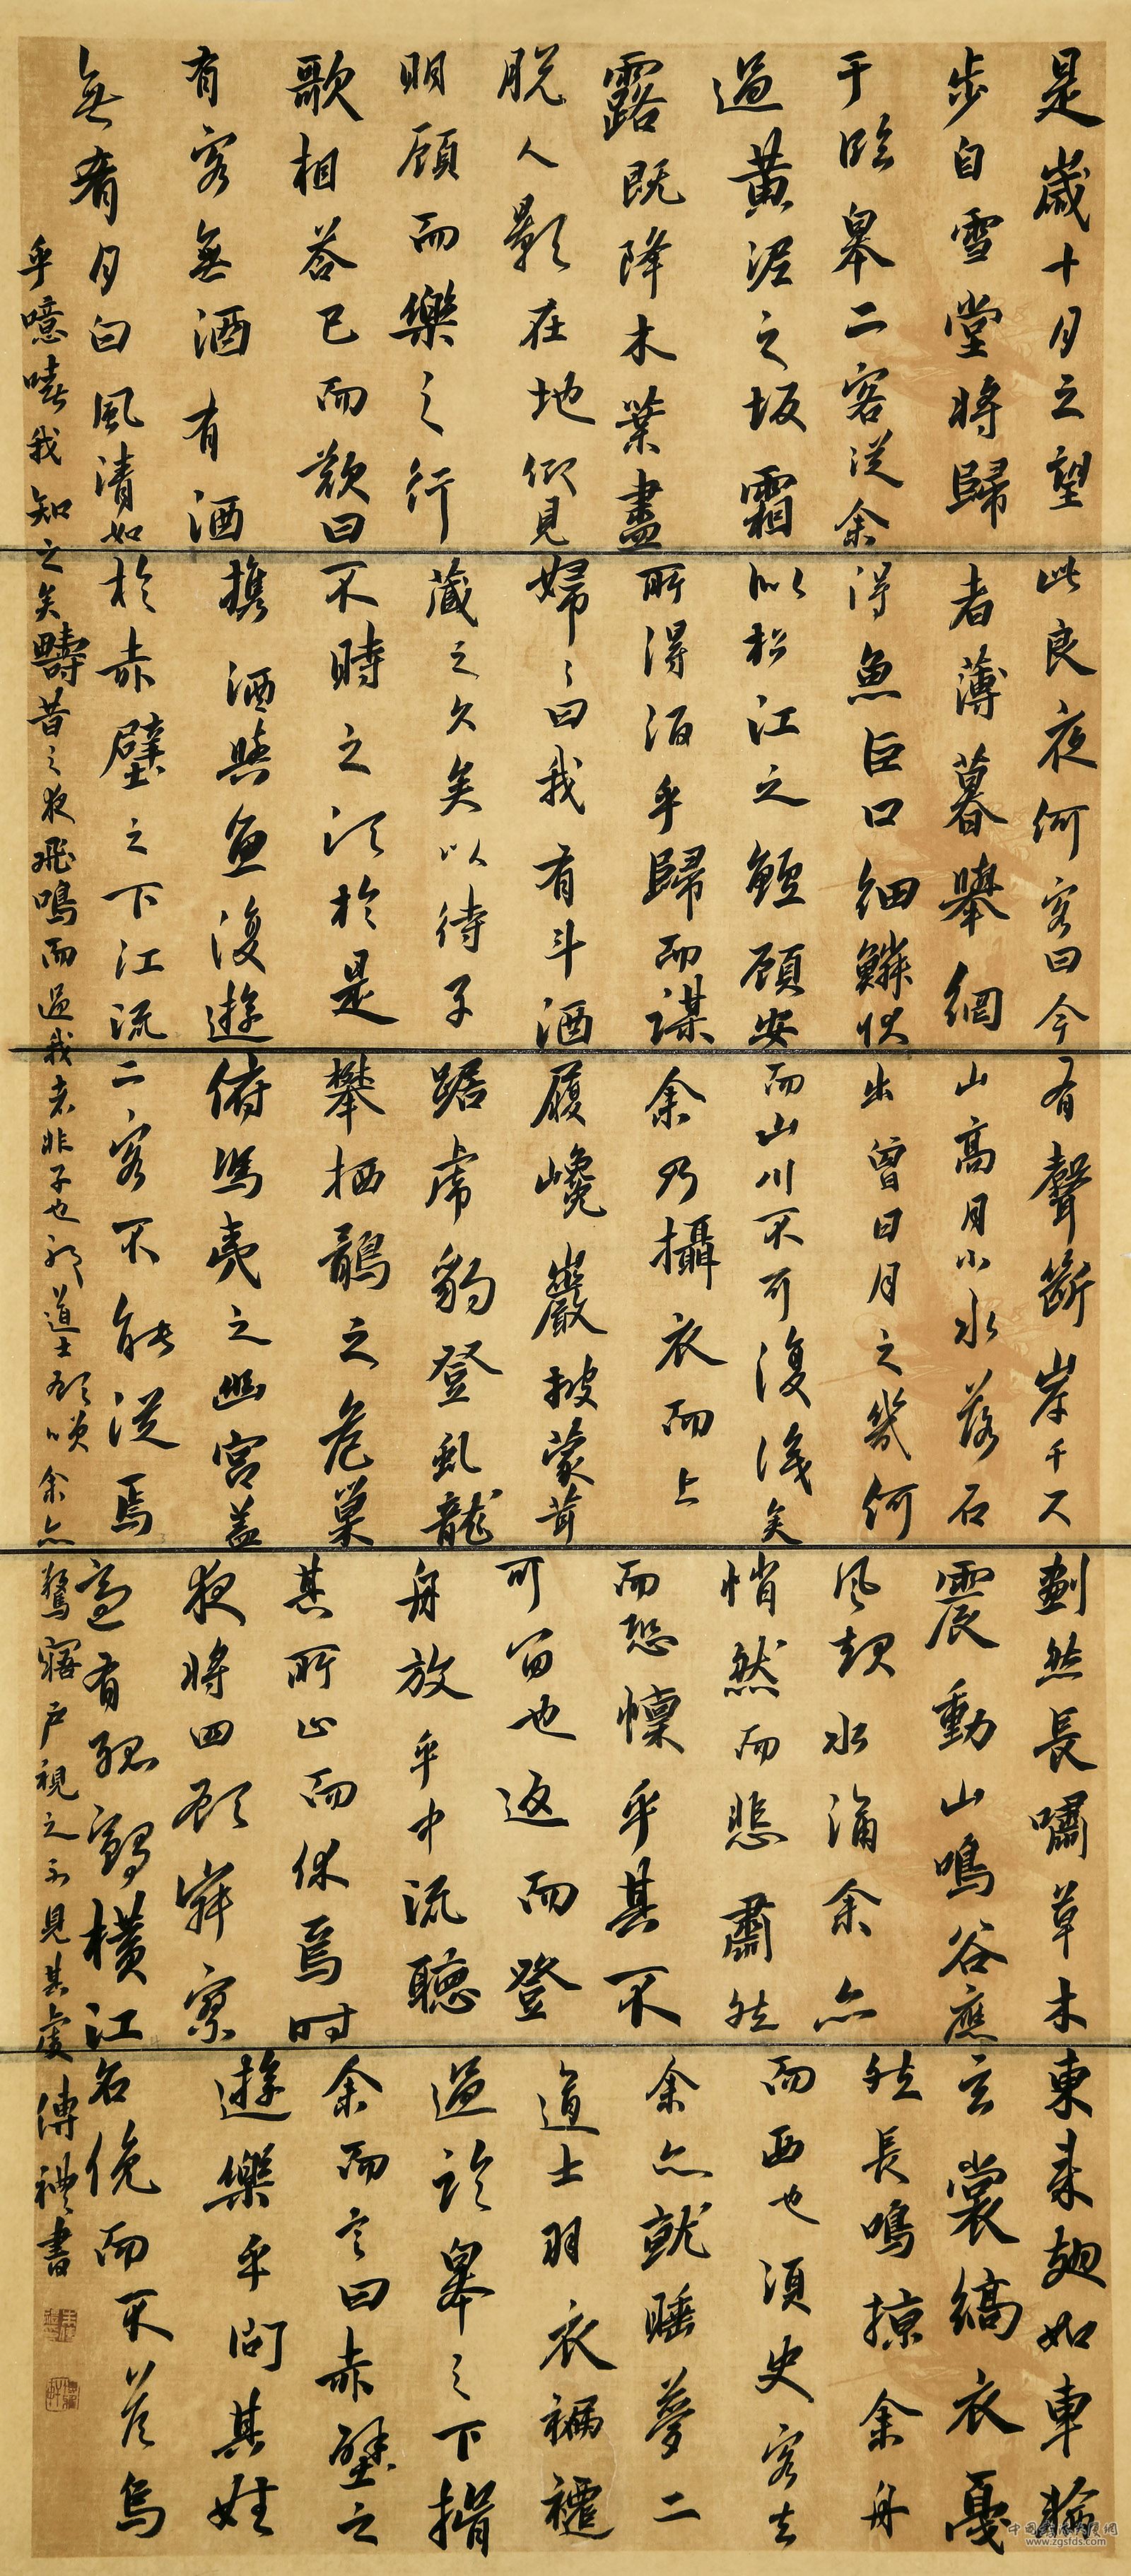 是歲十月之望
步自雪堂將歸
于臨皋二客從余
過黃泥之坂霜
露既降木葉盡
脫人影在地仰見
明顧而樂之行
歌相答已而歎曰
有客無酒有酒
無肴月白風清如
此良夜何客曰今
者薄暮舉網
得魚巨口細鱗狀
似松江之鱸顧安
所得酒乎歸而謀
婦々曰我有斗酒
藏之久矣以待子
不時之須於是
攜酒與魚復遊
於赤壁之下江流
有聲斷岸千尺
山高月小水落石
出曾日月之幾何
而山川不可復識矣
余乃攝衣而上
履巉巖披蒙茸
踞虎豹登虬龍
攀栖鶻之危巢
俯馮夷之幽宮蓋
二客不能從焉
劃然長嘯草木
震動山鳴谷應
風起水涌余亦
悄然而悲肅然
而恐懍乎其不
可留也返而登
舟放乎中流聽
其所止而休焉時
夜將四顧寂寥
適有孤鶴橫江
東來翅如車輪
玄裳縞衣戛
然長鳴掠余舟
而西也須臾客去
余亦就睡夢二
道士羽衣褊褼
過臨皋之下揖
余而言曰赤壁之
遊樂乎問其姓
名俛而不答烏
乎噫嘻我知之矣疇昔之夜飛鳴而過我者非子也耶道士顧笑余亦驚寤戶視之不見其處 傅禮書
www.zgsfds.com